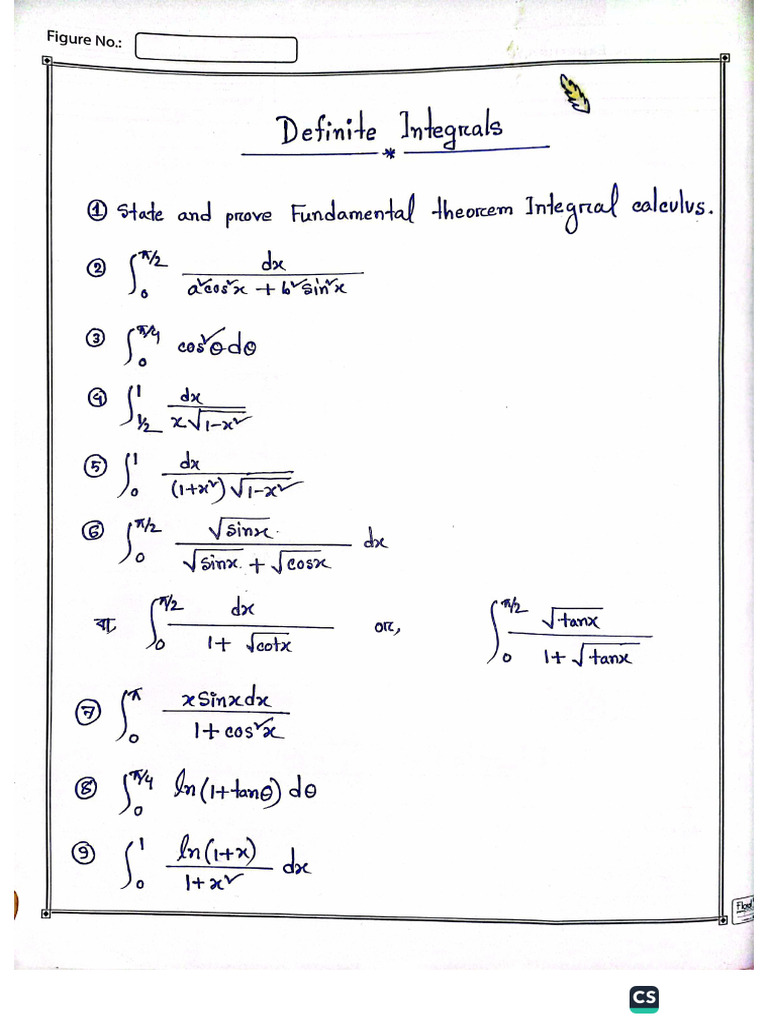 Figure No.:
Definite Integrals
① State and prove Fundamental theorem Integral calculus.
② ∫₀^{π/2} dx / (a²cos²x + b²sin²x)
③ ∫₀^{π/4} cos²θdθ
④ ∫_{1/2}^{1} dx / (x√(1-x²))
⑤ ∫₀^{1} dx / ((1+x²)√(1-x²))
⑥ ∫₀^{π/2} √sinx / (√sinx + √cosx) dx
বা, ∫₀^{π/2} dx / (1+ √cotx) or, ∫₀^{π/2} √tanx / (1+√tanx)
⑦ ∫₀^{π} xsinxdx / (1+cos²x)
⑧ ∫₀^{π/4} ln(1+tanθ) dθ
⑨ ∫₀^{1} ln(1+x) / (1+x²) dx
CS